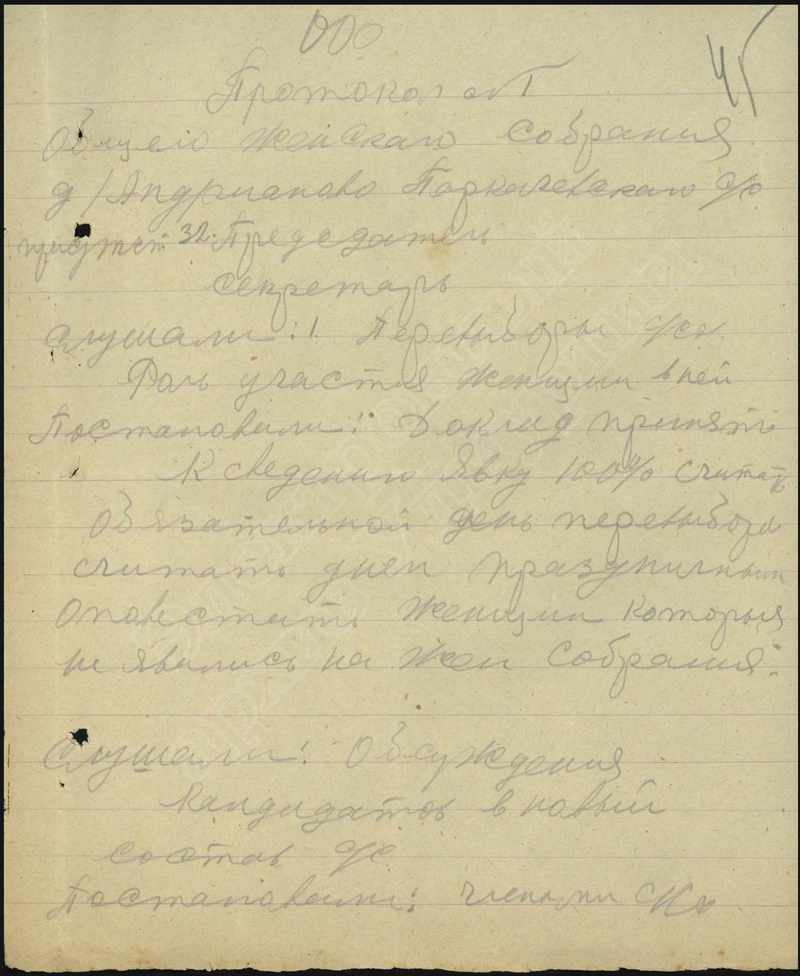 45
Протокол
Общего женского собрания
д/Андрианово Поркачевского с/с
присутст 32. Председатель
секретарь
Слушали: 1. Перевыборы с/с
Роль участия женщин в ней
Постановили: Доклад принять
К сведению Явку 100% считать
обязательной день перевыбора
считать днем праздничным
оповестить женщин которыя
не явились на жен собрания.
Слушали: Обсуждения
кандидатов в новый
состав с/с
Постановили: членами